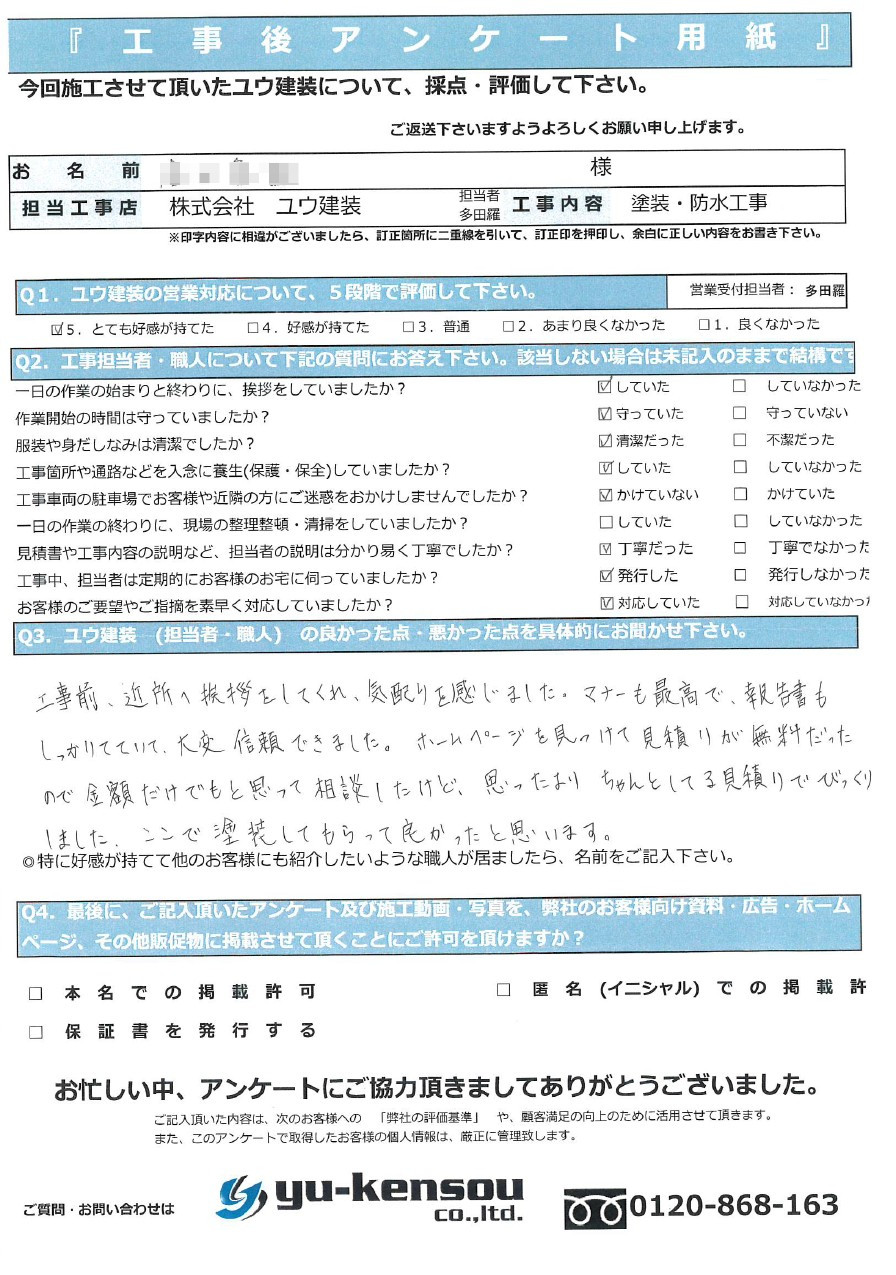 『工事後アンケート用紙』
今回施工させて頂いたユウ建装について、採点・評価して下さい。
ご返送下さいますようよろしくお願い申し上げます。
お名前 様
担当工事店 株式会社 ユウ建装 担当者 多田羅 工事内容 塗装・防水工事
※印字内容に相違がございましたら、訂正箇所に二重線を引いて、訂正印を押印し、余白に正しい内容をお書き下さい。
Q1．ユウ建装の営業対応について、５段階で評価して下さい。 営業受付担当者： 多田羅
☑5．とても好感が持てた □4．好感が持てた □3．普通 □2．あまり良くなかった □1．良くなかった
Q2．工事担当者・職人について下記の質問にお答え下さい。該当しない場合は未記入のままで結構です
一日の作業の始まりと終わりに、挨拶をしていましたか？ ☑していた □ していなかった
作業開始の時間は守っていましたか？ ☑守っていた □ 守っていない
服装や身だしなみは清潔でしたか？ ☑清潔だった □ 不潔だった
工事箇所や通路などを入念に養生(保護・保全)していましたか？ ☑していた □ していなかった
工事車両の駐車場でお客様や近隣の方にご迷惑をおかけしませんでしたか？ ☑かけていない □ かけていた
一日の作業の終わりに、現場の整理整頓・清掃をしていましたか？ □していた □ していなかった
見積書や工事内容の説明など、担当者の説明は分かり易く丁寧でしたか？ ☑丁寧だった □ 丁寧でなかった
工事中、担当者は定期的にお客様のお宅に伺っていましたか？ ☑発行した □ 発行しなかった
お客様のご要望やご指摘を素早く対応していましたか？ ☑対応していた □ 対応していなかった
Q3．ユウ建装 (担当者・職人) の良かった点・悪かった点を具体的にお聞かせ下さい。
工事前、近所へ挨拶をしてくれ、気配りを感じました。マナーも最高で、報告書も
しっかりてていて、大変信頼できました。ホームページを見つけて見積りが無料だった
ので金額だけでもと思って相談したけど、思ったより ちゃんとしてる見積りでびっくり
しました。ここで塗装してもらって良かったと思います。
◎特に好感が持てて他のお客様にも紹介したいような職人が居ましたら、名前をご記入下さい。
Q4．最後に、ご記入頂いたアンケート及び施工動画・写真を、弊社のお客様向け資料・広告・ホーム
ページ、その他販促物に掲載させて頂くことにご許可を頂けますか？
□ 本名での掲載許可 □ 匿名(イニシャル)での掲載許
□ 保証書を発行する
お忙しい中、アンケートにご協力頂きましてありがとうございました。
ご記入頂いた内容は、次のお客様への 「弊社の評価基準」 や、顧客満足の向上のために活用させて頂きます。
また、このアンケートで取得したお客様の個人情報は、厳正に管理致します。
ご質問・お問い合わせは yu-kensou co.,ltd. 0120-868-163